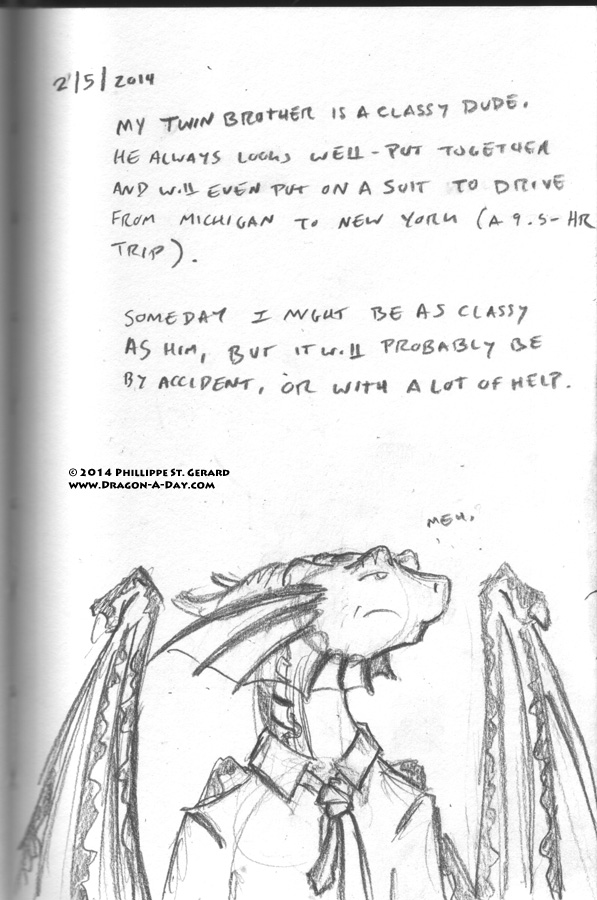 2/5/2014
MY TWIN BROTHER IS A CLASSY DUDE.
HE ALWAYS LOOKS WELL-PUT TOGETHER
AND WILL EVEN PUT ON A SUIT TO DRIVE
FROM MICHIGAN TO NEW YORK (A 9.5-HR
TRIP).
SOMEDAY I MIGHT BE AS CLASSY
AS HIM, BUT IT WILL PROBABLY BE
BY ACCIDENT, OR WITH A LOT OF HELP.
© 2014 PHILLIPPE ST. GERARD
WWW.DRAGON-A-DAY.COM
MEH.